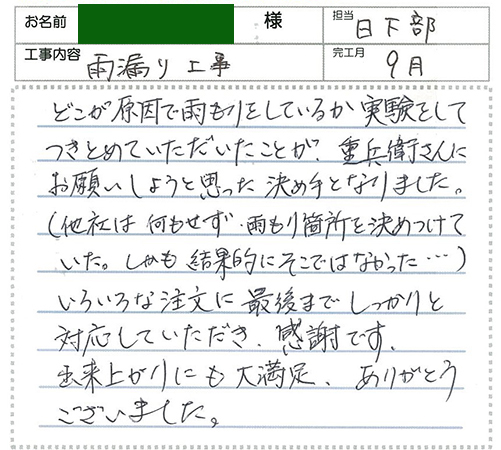 お名前 様 担当 日下部
工事内容 雨漏り工事 完工月 9月
どこが原因で雨もりをしているか実験をして
つきとめていただいたことが、重兵衛さんに
お願いしようと思った決め手となりました。
(他社は何もせず雨もり箇所を決めつけて
いた。しかも結果的にそこではなかった…)
いろいろな注文に最後までしっかりと
対応していただき、感謝です。
出来上がりにも大満足、ありがとう
ございました。